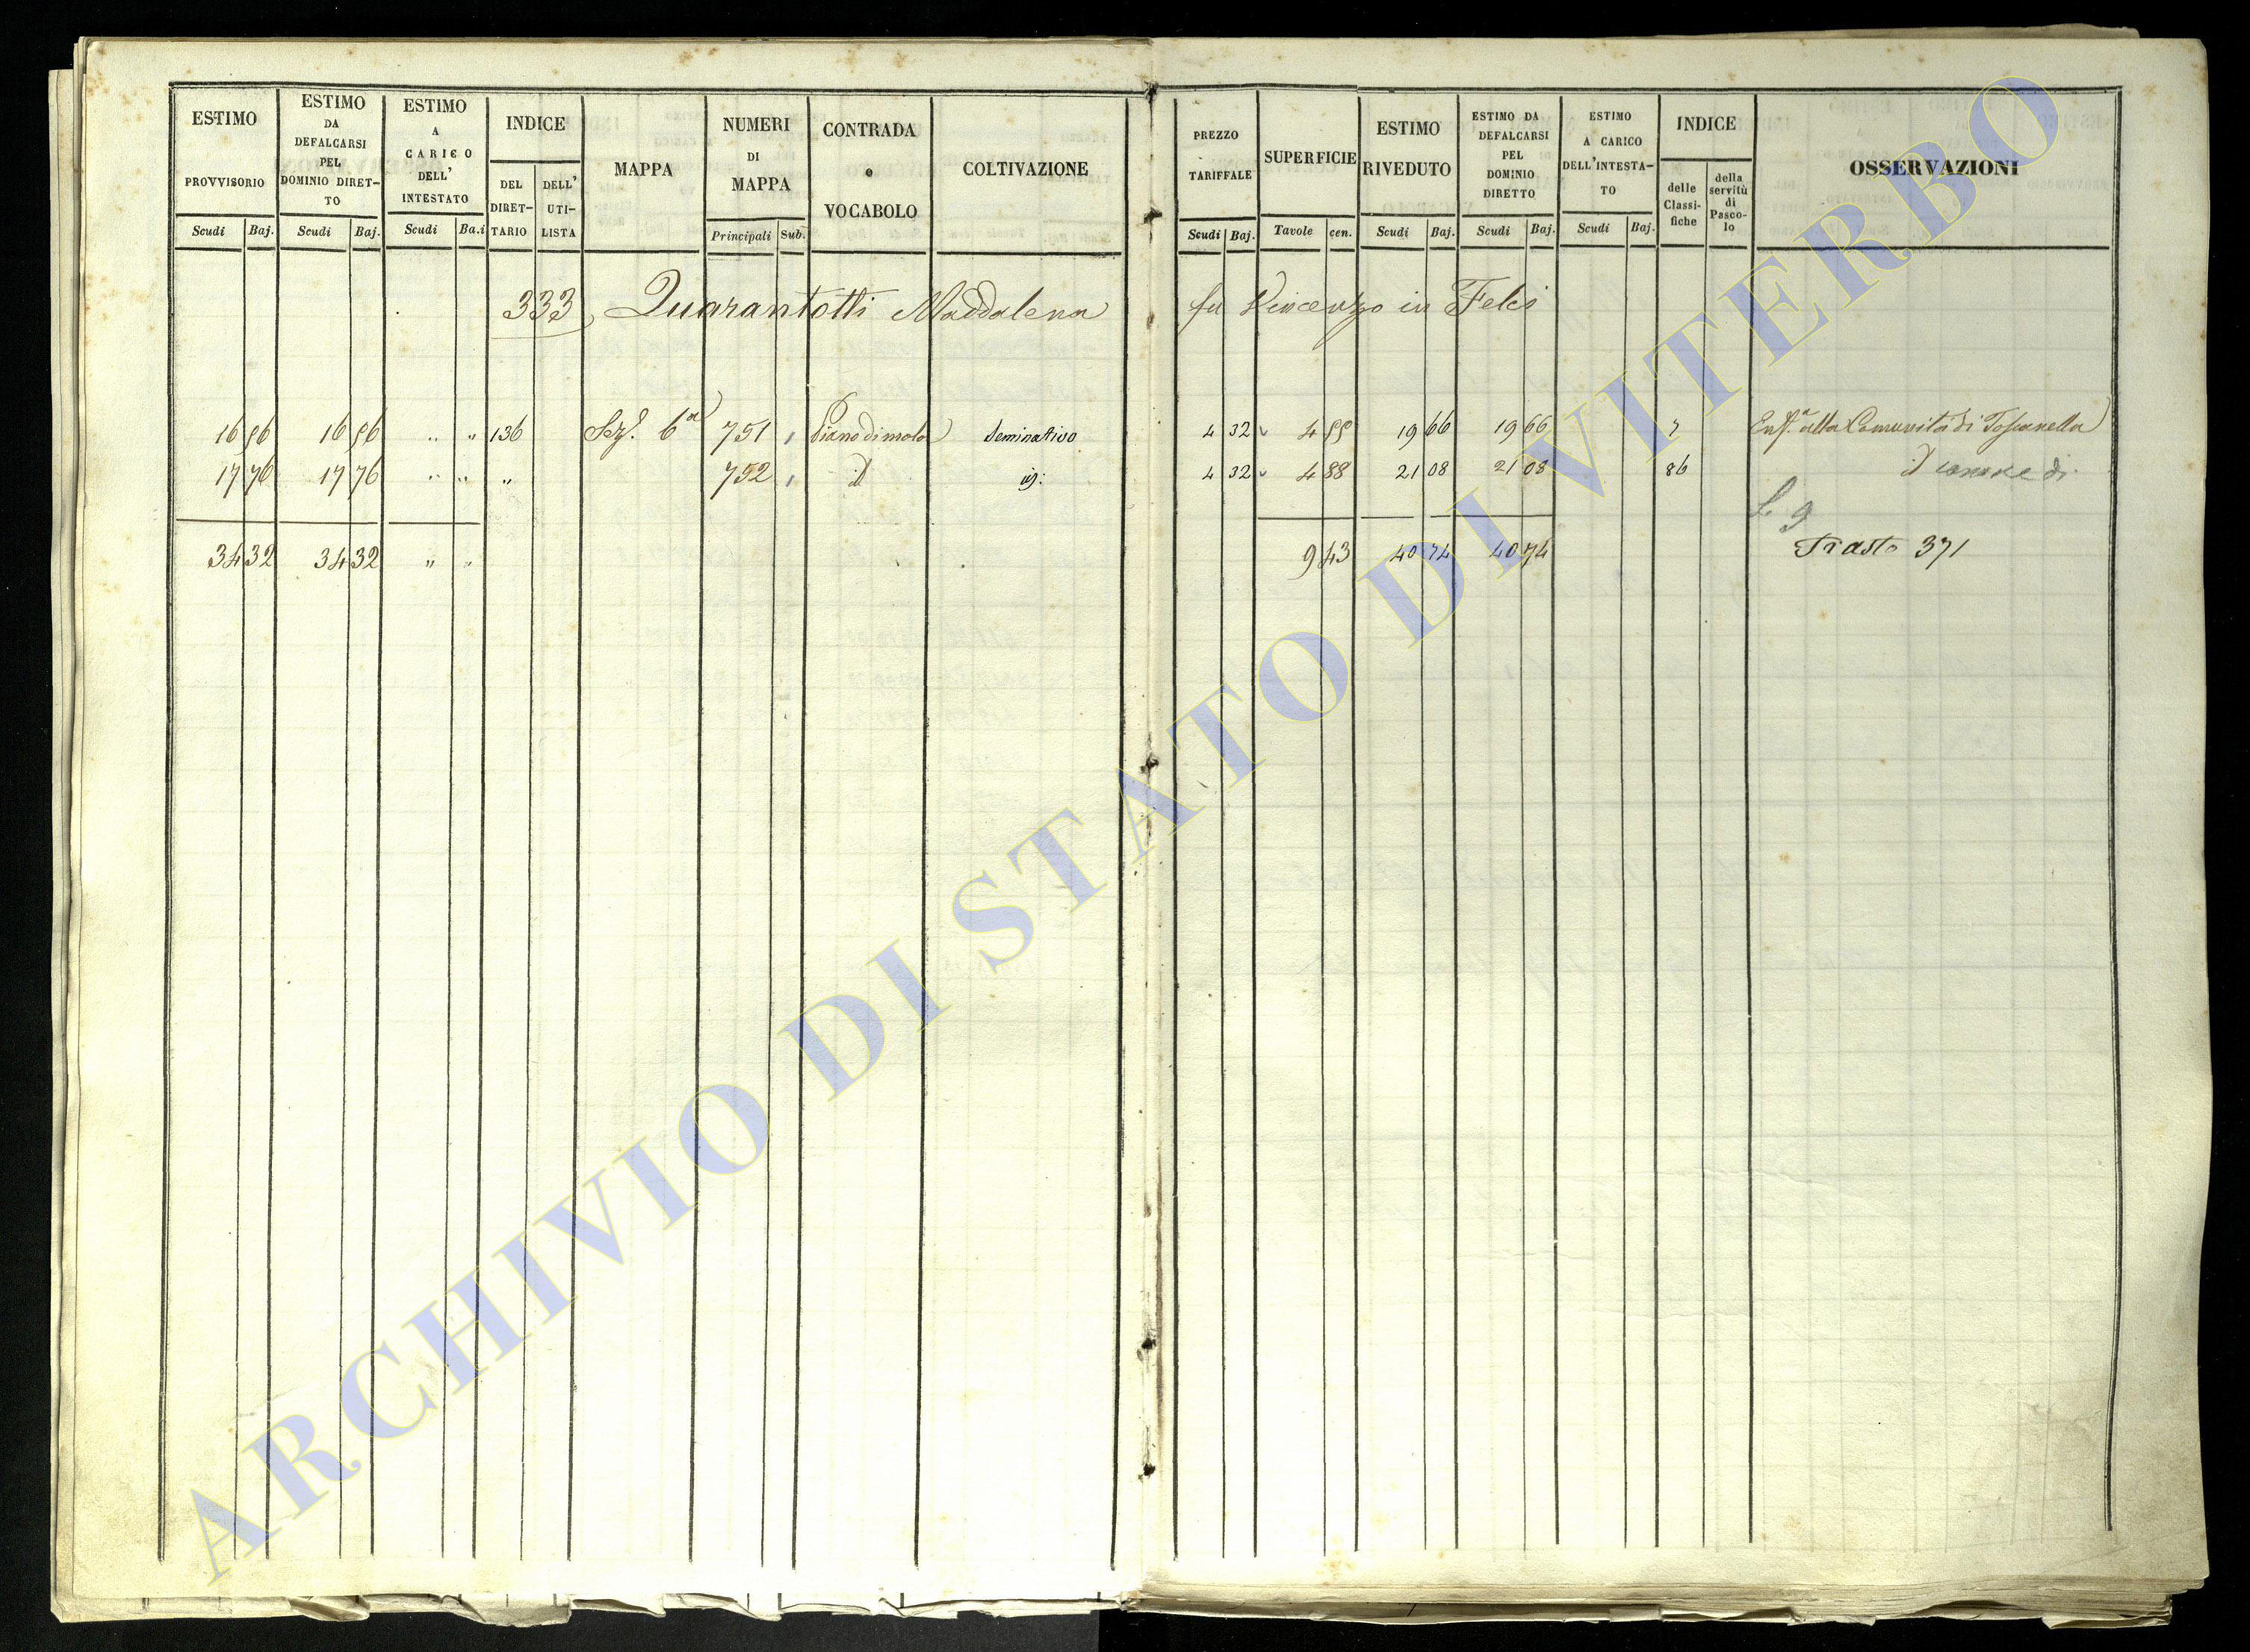 ESTIMO PROVVISORIO
ESTIMO DA DEFALCARSI PEL DOMINIO DIRET-TO
ESTIMO A CARICO DELL' INTESTATO
INDICE
DEL DIRET-TARIO
DELL' UTI-LISTA
MAPPA
NUMERI DI MAPPA
CONTRADA o VOCABOLO
COLTIVAZIONE
Scudi Baj. Scudi Baj. Scudi Ba.i Principali Sub.
PREZZO TARIFFALE
SUPERFICIE
ESTIMO RIVEDUTO
ESTIMO DA DEFALCARSI PEL DOMINIO DIRETTO
ESTIMO A CARICO DELL'INTESTA-TO
INDICE
delle Classi-fiche
della servitù di Pasco-lo
OSSERVAZIONI
Scudi Baj. Tavole cen. Scudi Baj. Scudi Baj. Scudi Baj.
333 Quarantotti Maddalena fu Vincenzo in Felci
16 56 16 56 " " 136 Sez. 6a 751 , Piano di mola Seminativo 4 32 4 55 19 66 19 66 7 Enf.a alla Comunità di Toscanella
17 76 17 76 " " " 752 , id id: 4 32 4 88 21 08 21 08 86 id canone di
9
34 32 34 32 " " 9 43 40 74 40 74 Trasto 371
ARCHIVIO DI STATO DI VITERBO